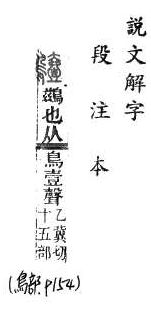 說文解字
段注本
鷧鷀也从鳥壹聲乙冀切
十五部
(鳥部 p154)